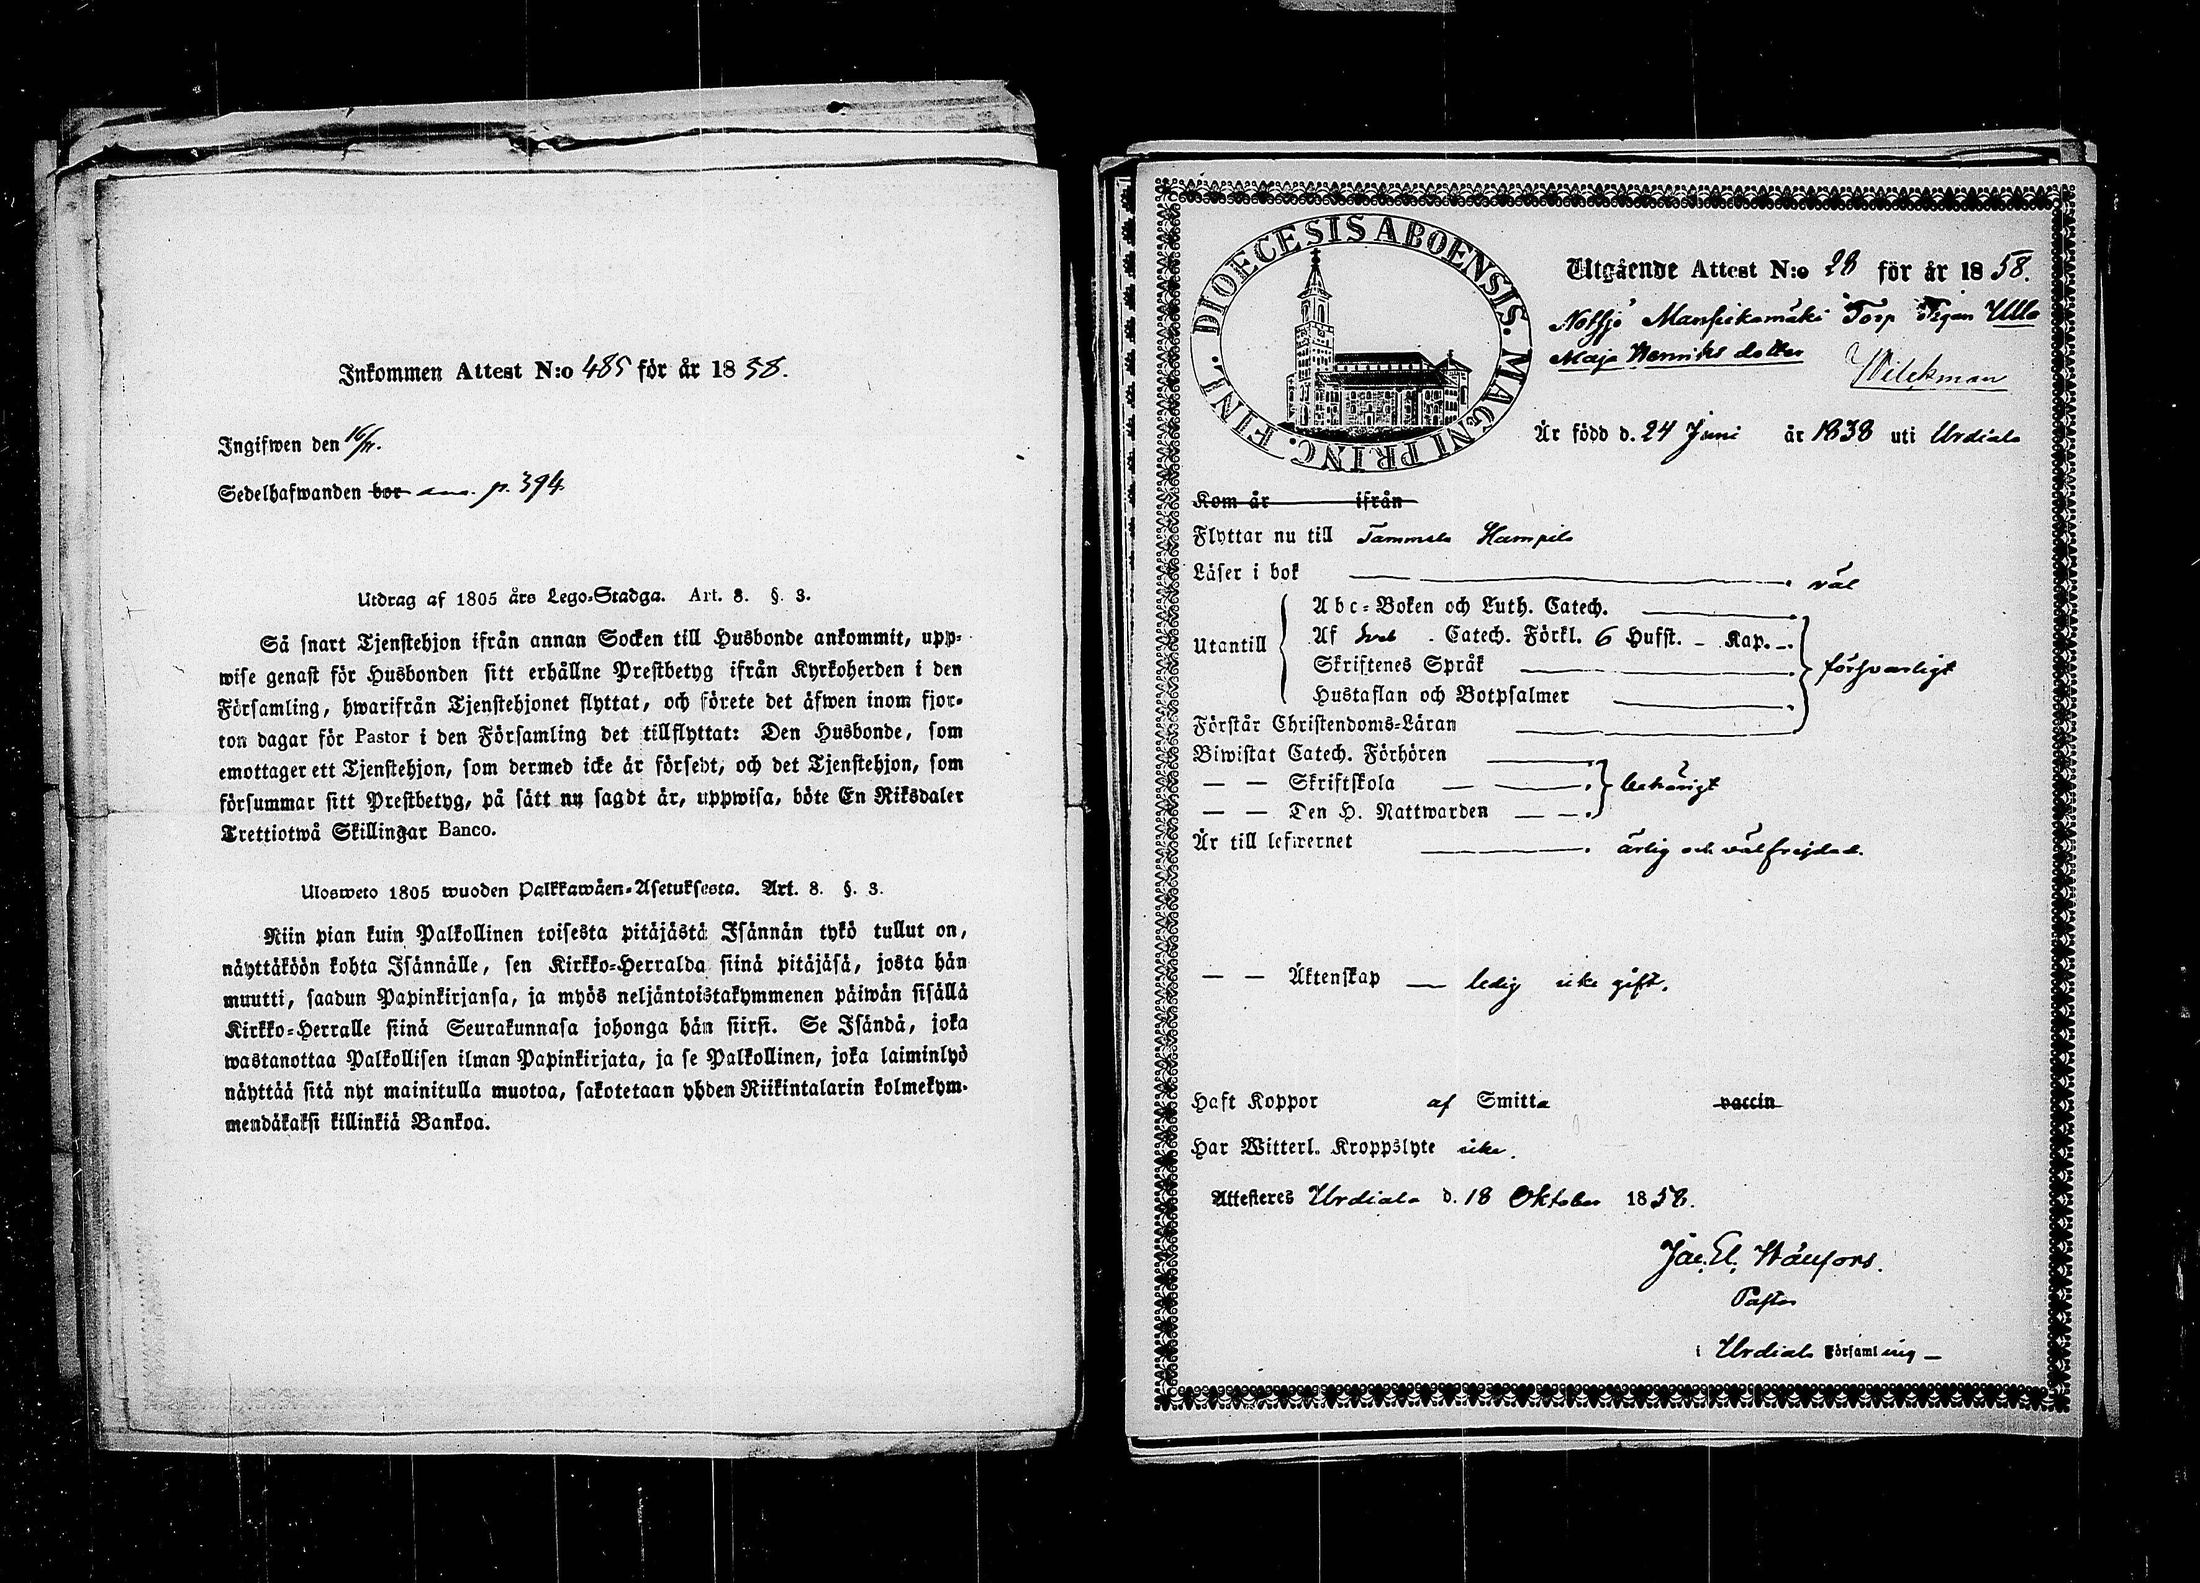 Inkommen Attest N:o 485 för år 1858.
Ingifwen den 16/11.
Sedelhafwanden bor ans. p. 394.
Utdrag af 1805 års Lego-Stadga. Art. 8. §. 3.
Så snart Tjenstehjon ifrån annan Socken till Husbonde ankommit, upp-
wise genast för Husbonden sitt erhållne Prestbetyg ifrån Kyrkoherden i den
Församling, hwarifrån Tjenstehjonet flyttat, och förete det äfwen inom fjor-
ton dagar för Pastor i den Församling det tillflyttat: Den Husbonde, som
emottager ett Tjenstehjon, som dermed icke är försedt, och det Tjenstehjon, som
försummar sitt Prestbetyg, på sätt nu sagdt är, uppwisa, böte En Riksdaler
Trettiotwå Skillingar Banco.
Ulosweto 1805 wuoden Palkkawäen-Asetuksesta. Art. 8. §. 3.
Niin pian kuin Palkollinen toisesta pitäjästä Isännän tykö tullut on,
näyttäköön kohta Isännälle, sen Kirkko-Herralda siinä pitäjäsä, josta hän
muutti, saadun Papinkirjansa, ja myös neljäntoistakymmenen päiwän sisällä
Kirkko-Herralle siinä Seurakunnasa johonga hän siirsi. Se Isändä, joka
wastanottaa Palkollisen ilman Papinkirjata, ja se Palkollinen, joka laiminlyö
näyttää sitä nyt mainitulla muotoa, sakotetaan yhden Riikintalarin kolmekym-
mendäkaksi killinkiä Bankoa.
DIOECESIS ABOENSIS. MAGNI PRINC. FINL.
Utgående Attest N:o 28 för år 1858.
Notsjö Mansikamäki Torp Pigan Ulla
Maja Henriks dotter Wilckman
Är född d. 24 Juni år 1838 uti Urdiala
Kom år ifrån
Flyttar nu till Tammela Hampilo
Läser i bok . väl
Utantill
Abc-Boken och Luth. Catech.
Af Sveb . Catech. Förkl. 6 Hufst. - Kap. -.
Skriftenes Språk . försvarligt
Hustaflan och Botpsalmer .
Förstår Christendoms-Läran
Biwistat Catech. Förhören
— — Skriftskola — . behörigt
— — Den H. Nattwarden — —.
Är till lefwernet . ärlig och välfrejdad.
— — Äktenskap — ledig icke gift.
Haft Koppor af Smitta vaccin
Har Witterl. Kroppslyte icke.
Attesteres Urdiala d. 18 Oktober 1858.
Pastor
i Urdiala Församling —